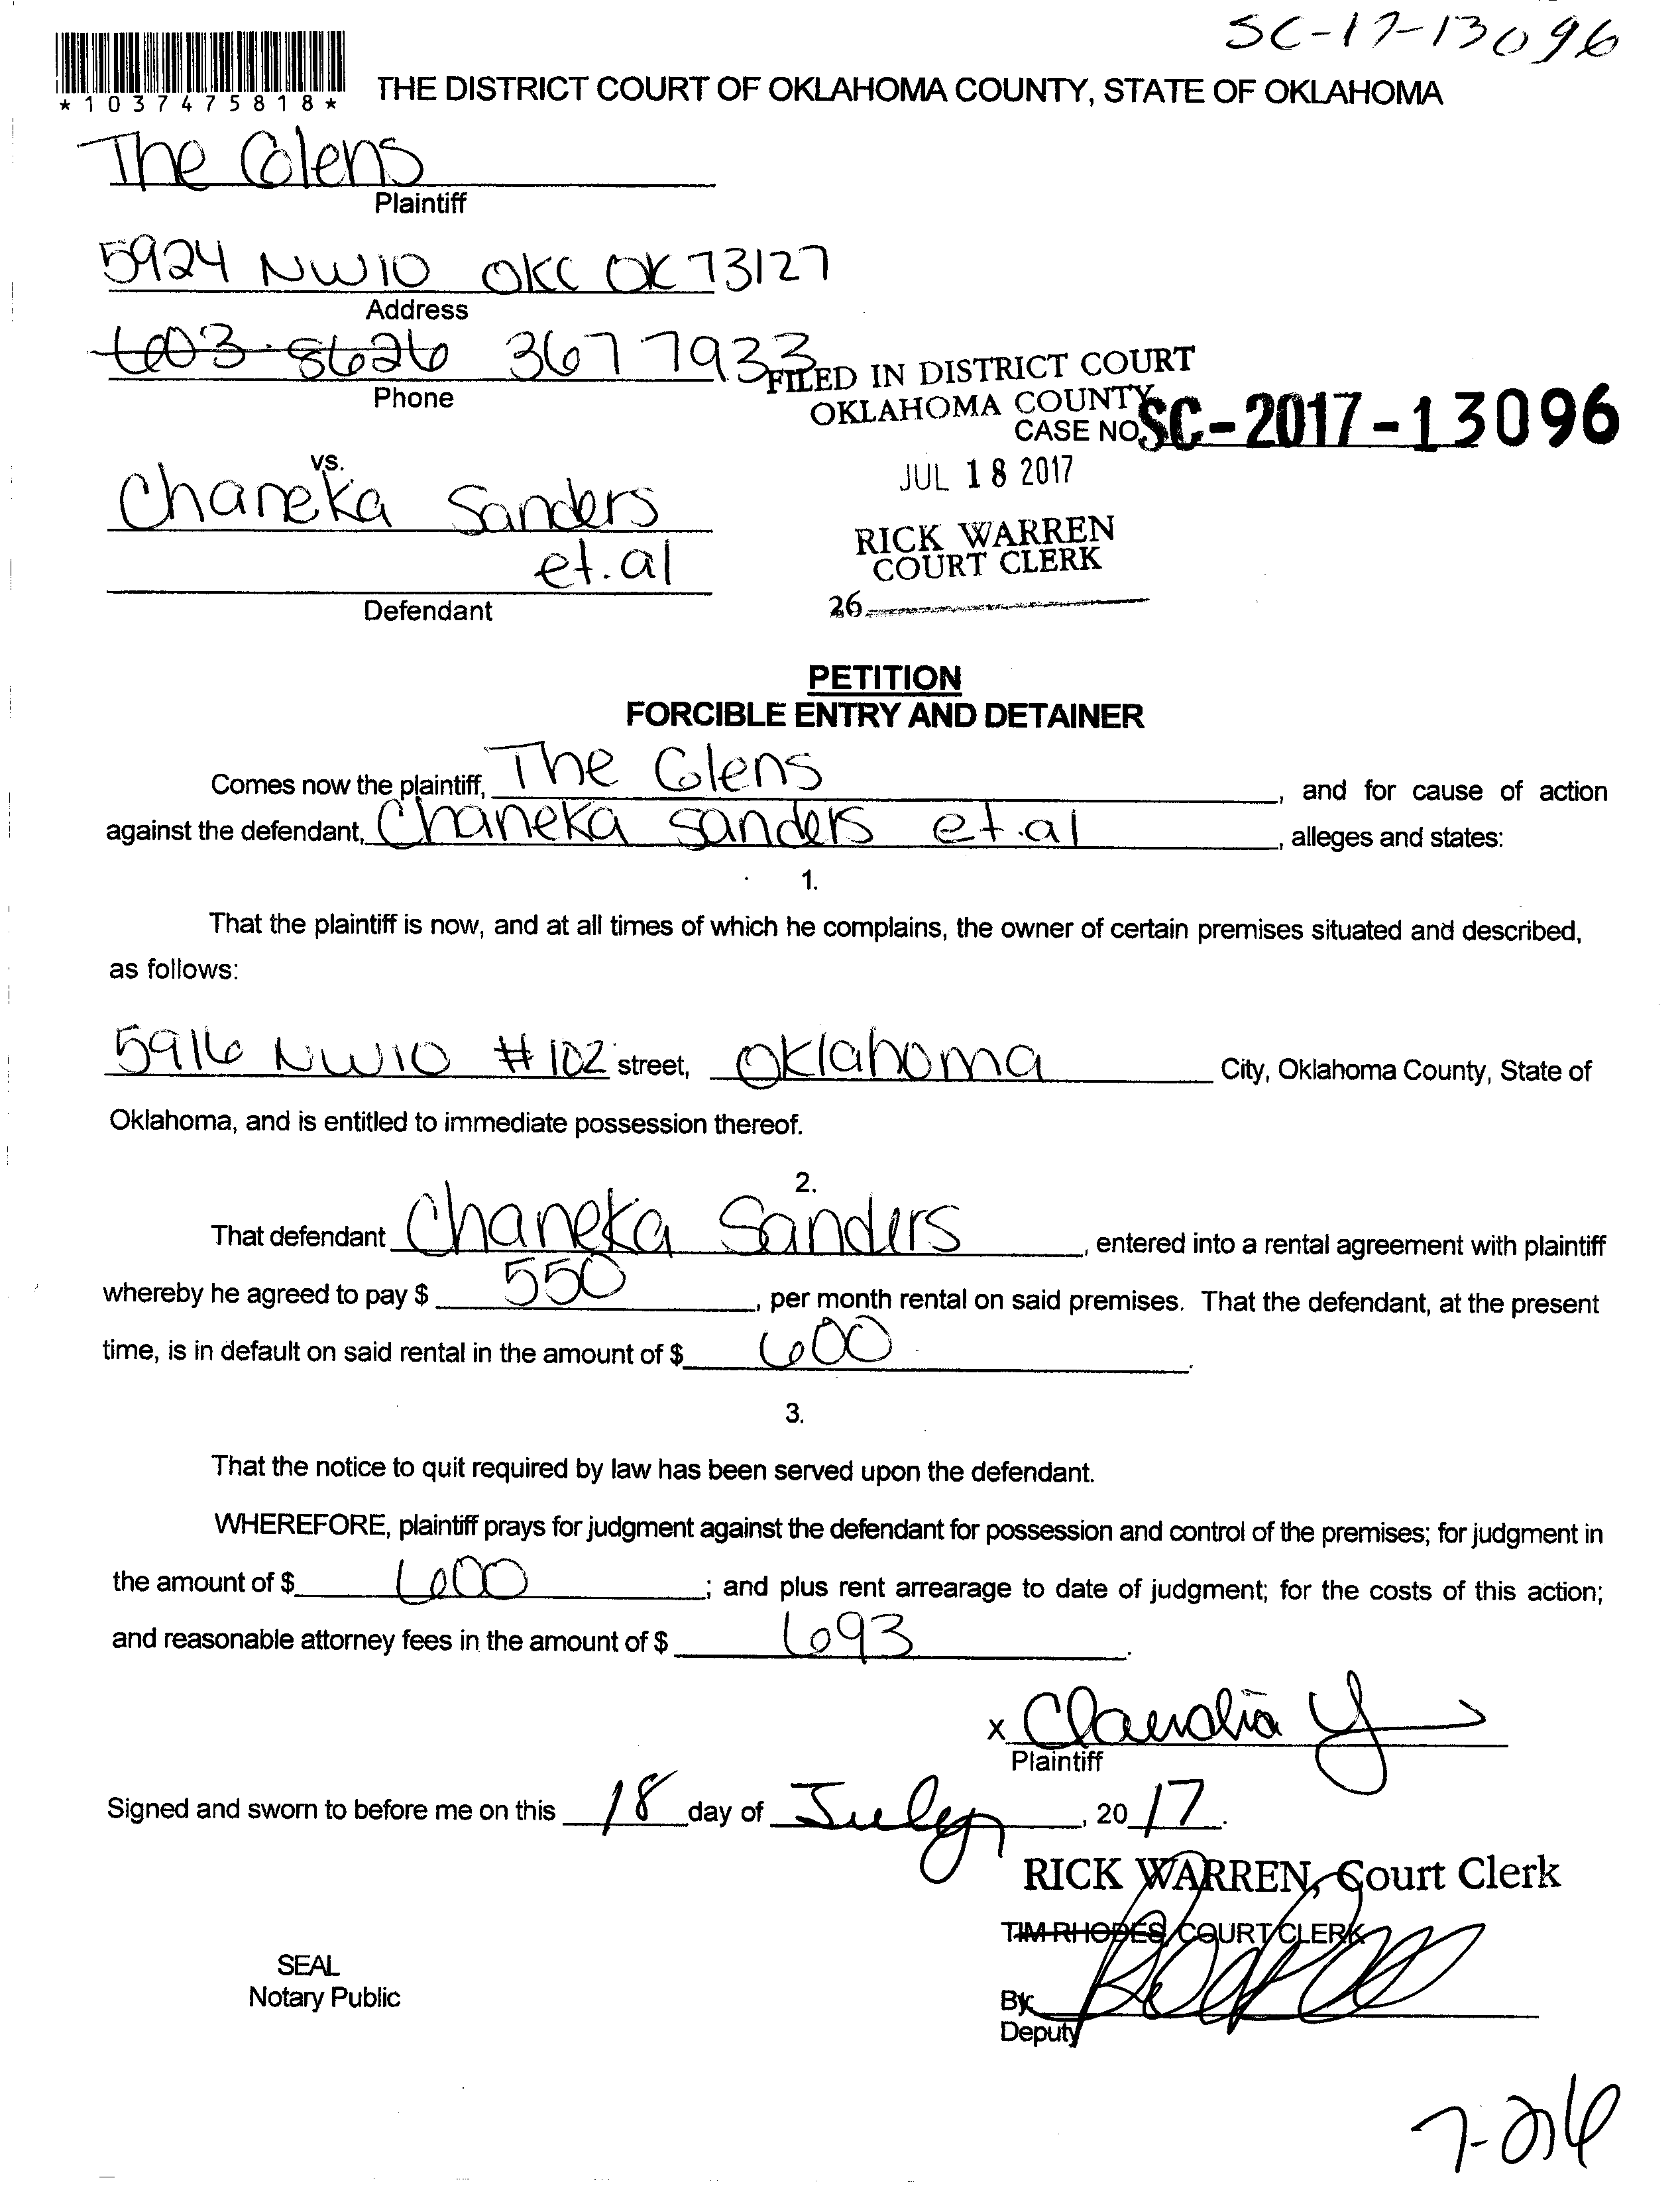 SC-17-13096
*1037475818*
THE DISTRICT COURT OF OKLAHOMA COUNTY, STATE OF OKLAHOMA
The Glens
Plaintiff
5924 NW10 OKC OK 73127
Address
603-8626 367 7933
Phone
FILED IN DISTRICT COURT
OKLAHOMA COUNTY
CASE NO. SC-2017-13096
JUL 18 2017
vs.
Chaneka Sanders
et.al
Defendant
RICK WARREN
COURT CLERK
26
PETITION
FORCIBLE ENTRY AND DETAINER
Comes now the plaintiff, The Glens, and for cause of action
against the defendant, Chaneka Sanders et.al, alleges and states:
1.
That the plaintiff is now, and at all times of which he complains, the owner of certain premises situated and described,
as follows:
5916 NW10 #102 street, Oklahoma City, Oklahoma County, State of
Oklahoma, and is entitled to immediate possession thereof.
2.
That defendant Chaneka Sanders, entered into a rental agreement with plaintiff
whereby he agreed to pay $ 550, per month rental on said premises. That the defendant, at the present
time, is in default on said rental in the amount of $ 600.
3.
That the notice to quit required by law has been served upon the defendant.
WHEREFORE, plaintiff prays for judgment against the defendant for possession and control of the premises; for judgment in
the amount of $ 600; and plus rent arrearage to date of judgment; for the costs of this action;
and reasonable attorney fees in the amount of $ 693.
x Claudia Y
Plaintiff
Signed and sworn to before me on this 18 day of July, 20 17.
RICK WARREN, Court Clerk
TIM RHODES, COURT CLERK
SEAL
Notary Public
By:
Deputy
7-26